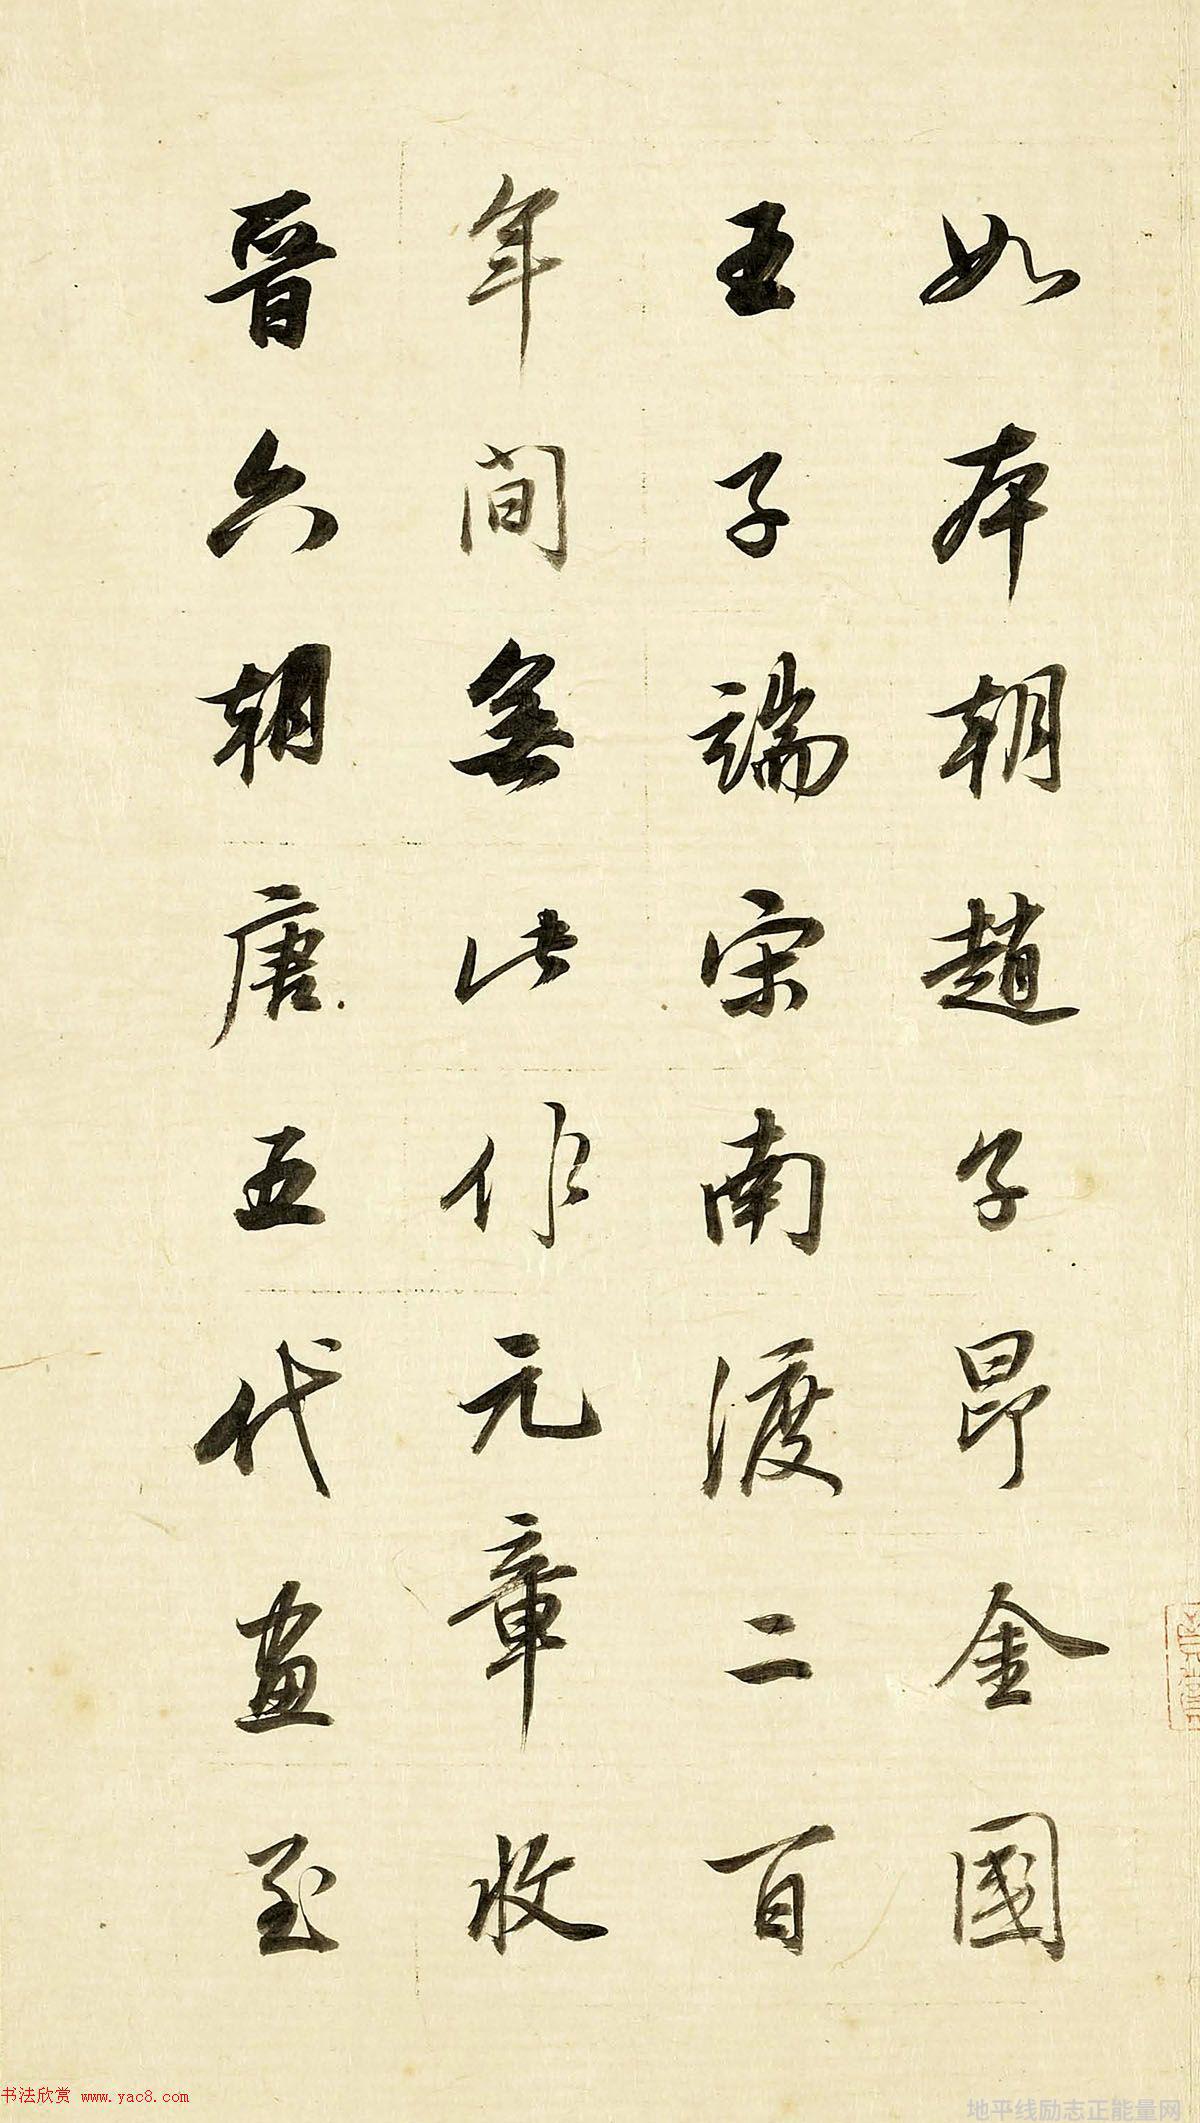 如本朝趙子昂金國
王子端宋南渡二百
年間無此作元章收
晉六朝唐五代畫至
书法欣赏 www.yac8.com
地平线励志正能量网